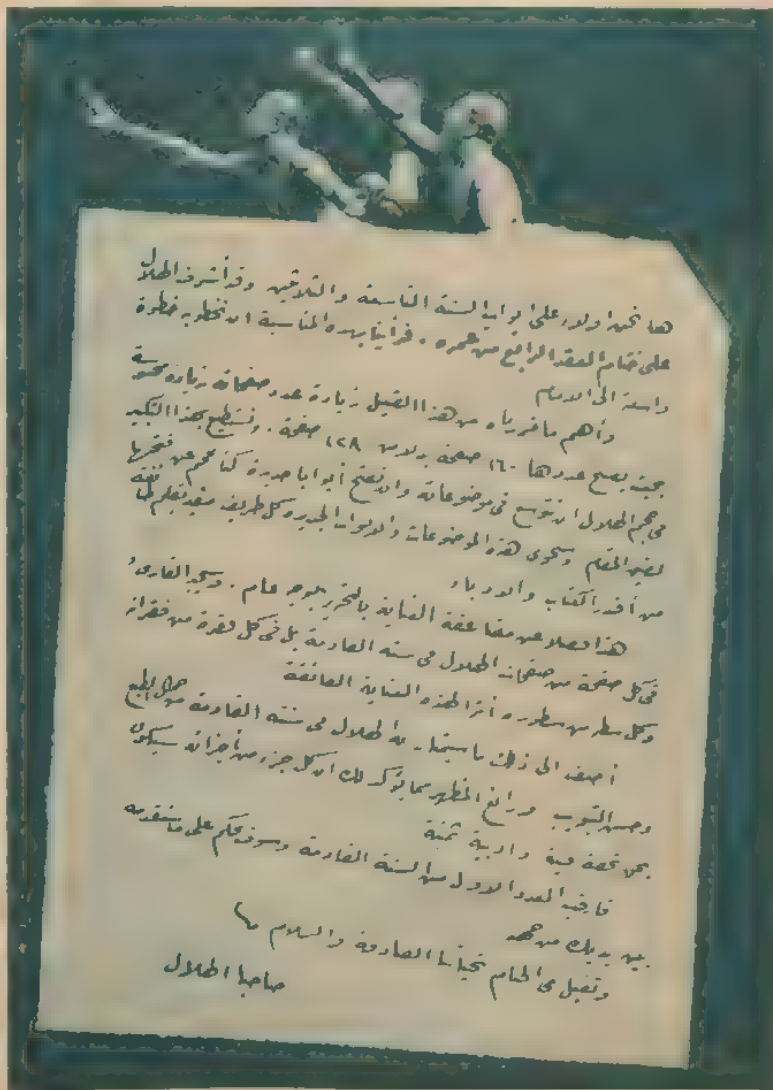 ها نحن اولاء على ابواب السنة التاسعة والثلاثين وقد أشرف الهلال
على ختام العقد الرابع من عمره . فرأينا بهذه المناسبة ان نخطو به خطوة
واسعة الى الامام
وأهم ما قررناه من هذا القبيل زيادة عدد صفحاته زيادة محسوسة
بحيث يصبح عددها ١٦٠ صفحة بدلا من ١٢٨ صفحة . ونستطيع بهذا التكبير
في حجم الهلال ان نتوسع في موضوعاته وان نفتح أبوابا جديدة كنا نحجم عن فتحها
لضيق المقام وستحوى هذه الموضوعات والابواب الجديدة كل طريف مفيد بقلم طائفة
من أقدر الكتاب والادباء
هذا فضلا عن مضاعفة العناية بالتحرير بوجه عام . وسيجد القارىء
في كل صفحة من صفحات الهلال في سنته القادمة بل في كل فقرة من فقراته
وكل سطر من سطوره أثرا لهذه العناية الفائقة
أضف الى ذلك ما سيمتاز به الهلال في سنته القادمة من جمال الطبع
وحسن التبويب ورائع المظهر مما يؤكد لك ان كل جزء من أجزائه سيكون
بحق تحفة فنية وادبية ثمينة
فارقب العدد الاول من السنة القادمة وسوف تحكم على ما سنقدمه
بين يديك من جهد
وتقبل في الختام تحياتنا الصادقة والسلام
صاحبا الهلال